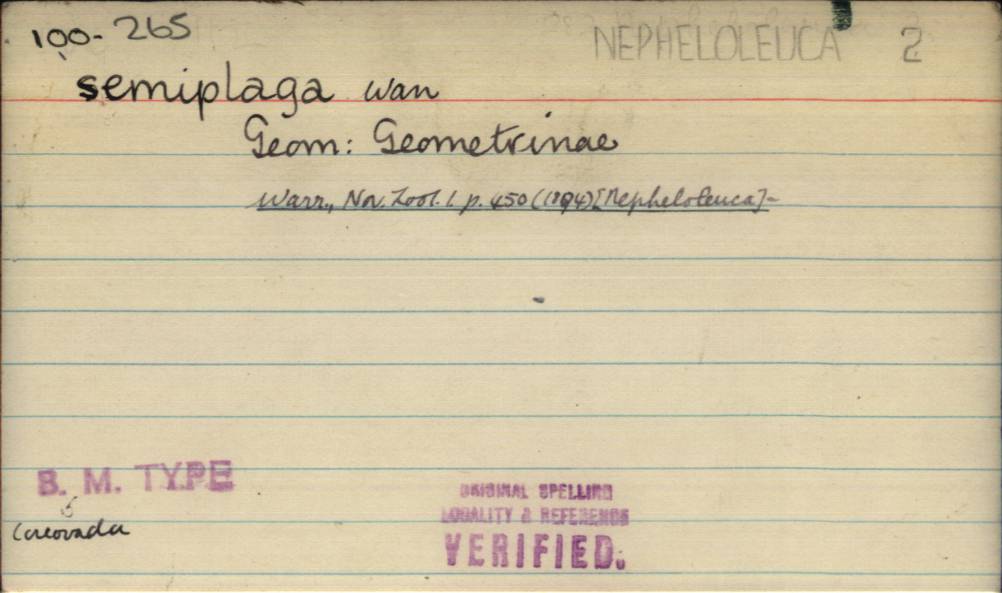 100-265 NEPHELOLEUCA 2
semiplaga warr
Geom: Geometrinae
Warr., Nov. Zool. 1. p. 450 (1894) [Nepheloleuca]-
B. M. TYPE
♂
ORIGINAL SPELLING
LOCALITY & REFERENCE
VERIFIED.